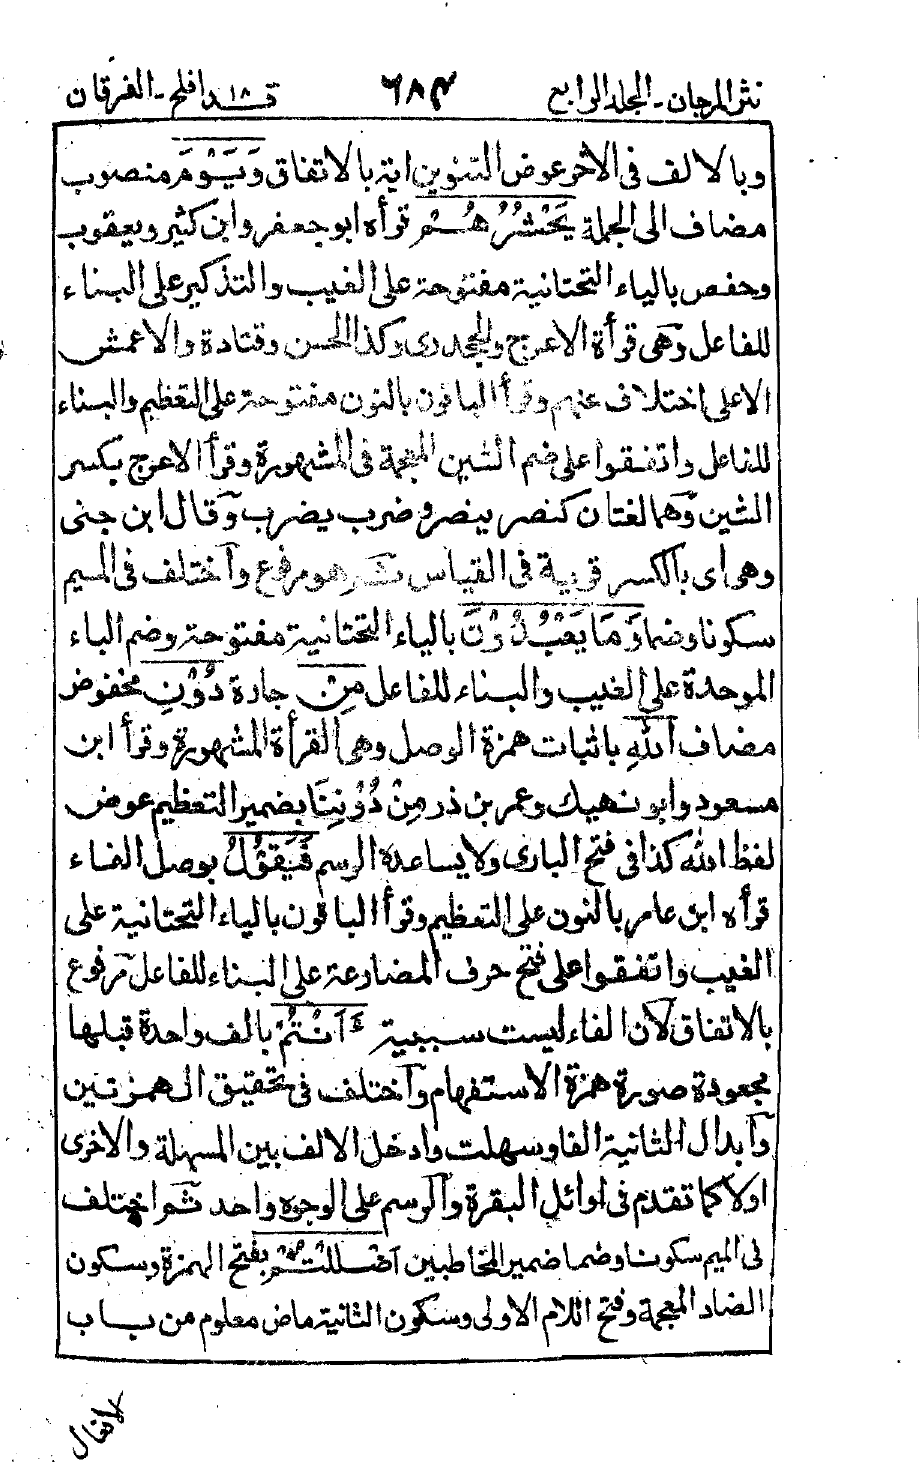 نثر المرجان - المجلد الرابع
٦٨٣
قد افلح ١٨ - الفرقان
وبالالف فى الآخر عوض التنوين اية بالاتفاق وَيَوْمَ منصوب
مضاف الى الجملة يَحْشُرُهُمْ قرأه ابوجعفر وابن كثير ويعقوب
وحفص بالياء التحتانية مفتوحة على الغيب والتذكير على البناء
للفاعل وهى قرأة الاعرج والجحدرى وكذا الحسن وقتادة والاعمش
الا على اختلاف عنهم وقرأ الباقون بالنون مفتوحة على التعظيم والبناء
للفاعل واتفقوا على ضم الشين المعجمة فى المشهورة وقرأ الاعرج بكسر
الشين وهما لغتان كنصر ينصر وضرب يضرب وقال ابن جنى
وهى اى بالكسر قوية فى القياس ثم هو مرفوع واختلف فى الميم
سكونا وضما وَمَا يَعْبُدُوْنَ بالياء التحتانية مفتوحة وضم الباء
الموحدة على الغيب والبناء للفاعل مِنْ جارة دُوْنِ مخفوض
مضاف اللّٰهِ باثبات همزة الوصل وهى القرأة المشهورة وقرأ ابن
مسعود وابو نهيك وعمر بن ذر مِنْ دُوْنِنَا بضمير التعظيم عوض
لفظ الله كذا فى فتح البارى ولا يساعده الرسم فَيَقُوْلُ بوصل الفاء
قرأه ابن عامر بالنون على التعظيم وقرأ الباقون بالياء التحتانية على
الغيب واتفقوا على فتح حرف المضارعة على البناء للفاعل مرفوع
بالاتفاق لان الفاء ليست سببية ءَاَنْتُمْ بالف واحدة قبلها
مجعودة صورة همزة الاستفهام واختلف فى تحقيق الهمزتين
وابدال الثانية الفا وسهلت وادخل الالف بين المسهلة والاخرى
اولا كما تقدم فى اوائل البقرة والرسم على الوجوه واحد ثم اختلف
فى الميم سكونا وضما ضمير المخاطبين اَضْلَلْتُمْ بفتح الهمزة وسكون
الضاد المعجمة وفتح اللام الاولى وسكون الثانية ماض معلوم من باب